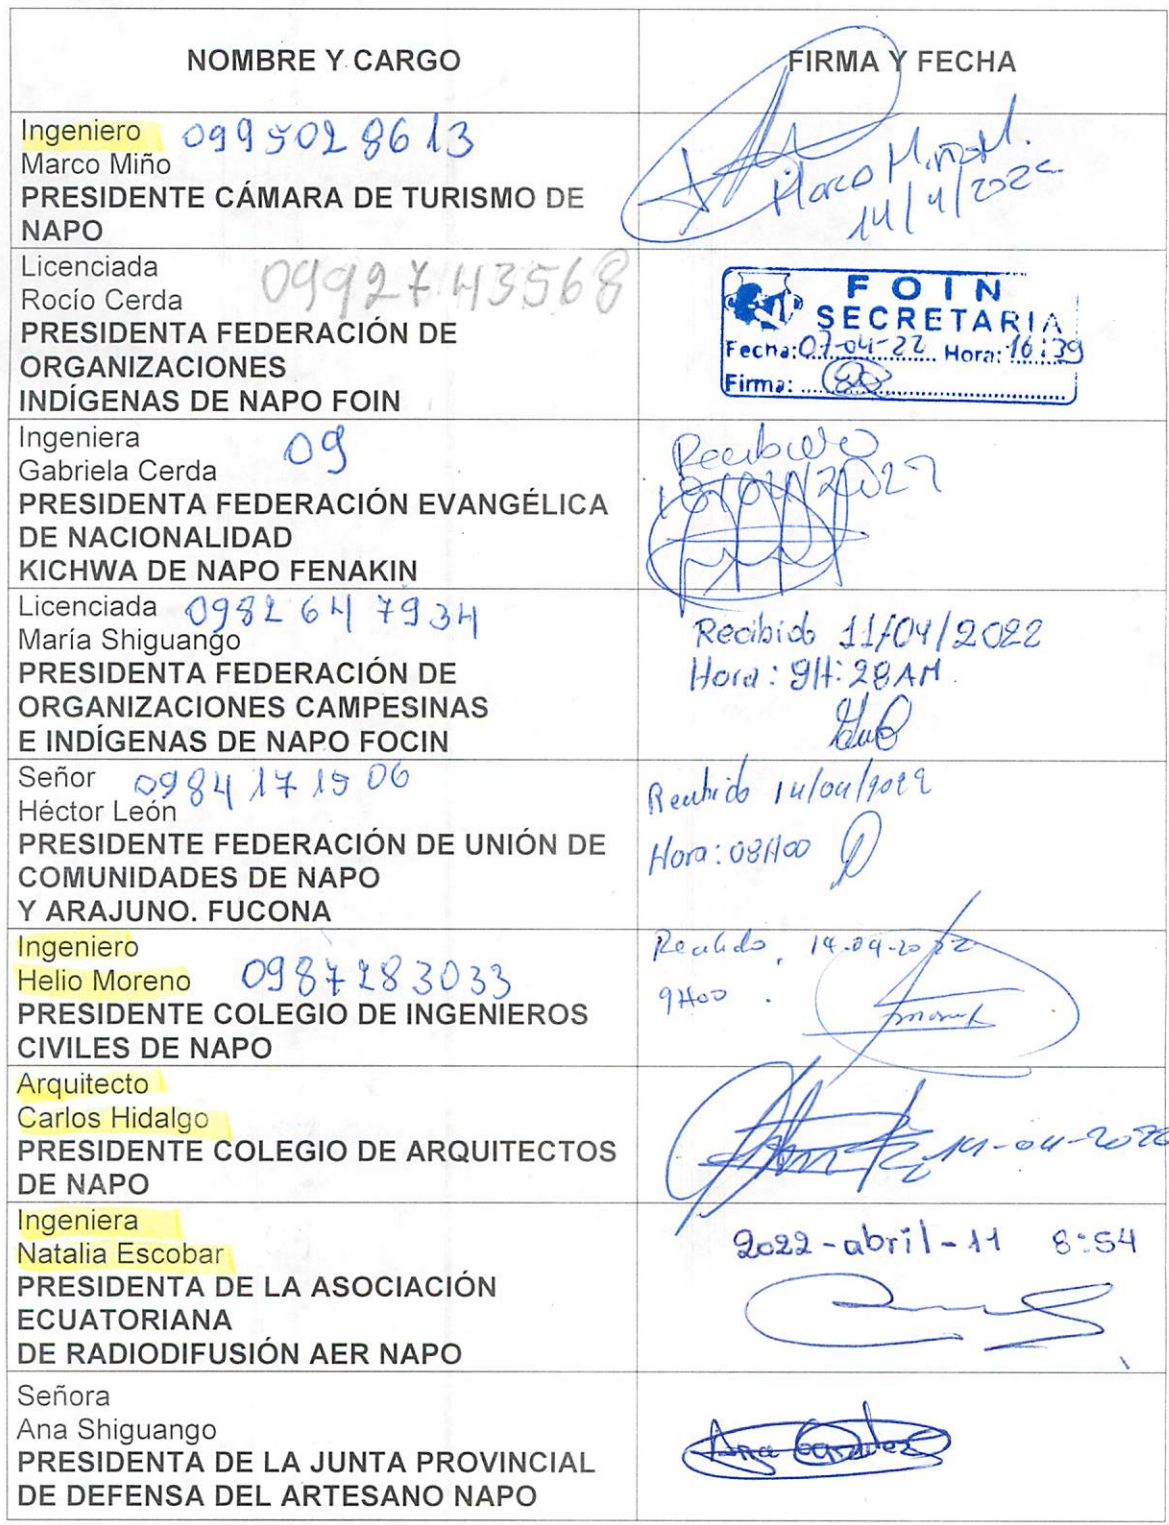 NOMBRE Y CARGO
FIRMA Y FECHA
Ingeniero 0995028613
Marco Miño
PRESIDENTE CÁMARA DE TURISMO DE
NAPO
Marco Miño M.
14/4/2022
Licenciada
Rocío Cerda 0992743568
PRESIDENTA FEDERACIÓN DE
ORGANIZACIONES
INDÍGENAS DE NAPO FOIN
FOIN
SECRETARIA
Fecha: 07-04-22 Hora: 16:39
Firma:
Ingeniera 09
Gabriela Cerda
PRESIDENTA FEDERACIÓN EVANGÉLICA
DE NACIONALIDAD
KICHWA DE NAPO FENAKIN
Recibido
Licenciada 0982647934
María Shiguango
PRESIDENTA FEDERACIÓN DE
ORGANIZACIONES CAMPESINAS
E INDÍGENAS DE NAPO FOCIN
Recibido 11/04/2022
Hora: 9H:28AM
Señor 0984171506
Héctor León
PRESIDENTE FEDERACIÓN DE UNIÓN DE
COMUNIDADES DE NAPO
Y ARAJUNO. FUCONA
Recibido 14/04/2022
Hora: 08H00
Ingeniero
Helio Moreno 0987283033
PRESIDENTE COLEGIO DE INGENIEROS
CIVILES DE NAPO
Recibido, 14-04-2022
9H00.
Arquitecto
Carlos Hidalgo
PRESIDENTE COLEGIO DE ARQUITECTOS
DE NAPO
14-04-2022
Ingeniera
Natalia Escobar
PRESIDENTA DE LA ASOCIACIÓN
ECUATORIANA
DE RADIODIFUSIÓN AER NAPO
2022-abril-11 8:54
Señora
Ana Shiguango
PRESIDENTA DE LA JUNTA PROVINCIAL
DE DEFENSA DEL ARTESANO NAPO
Ana